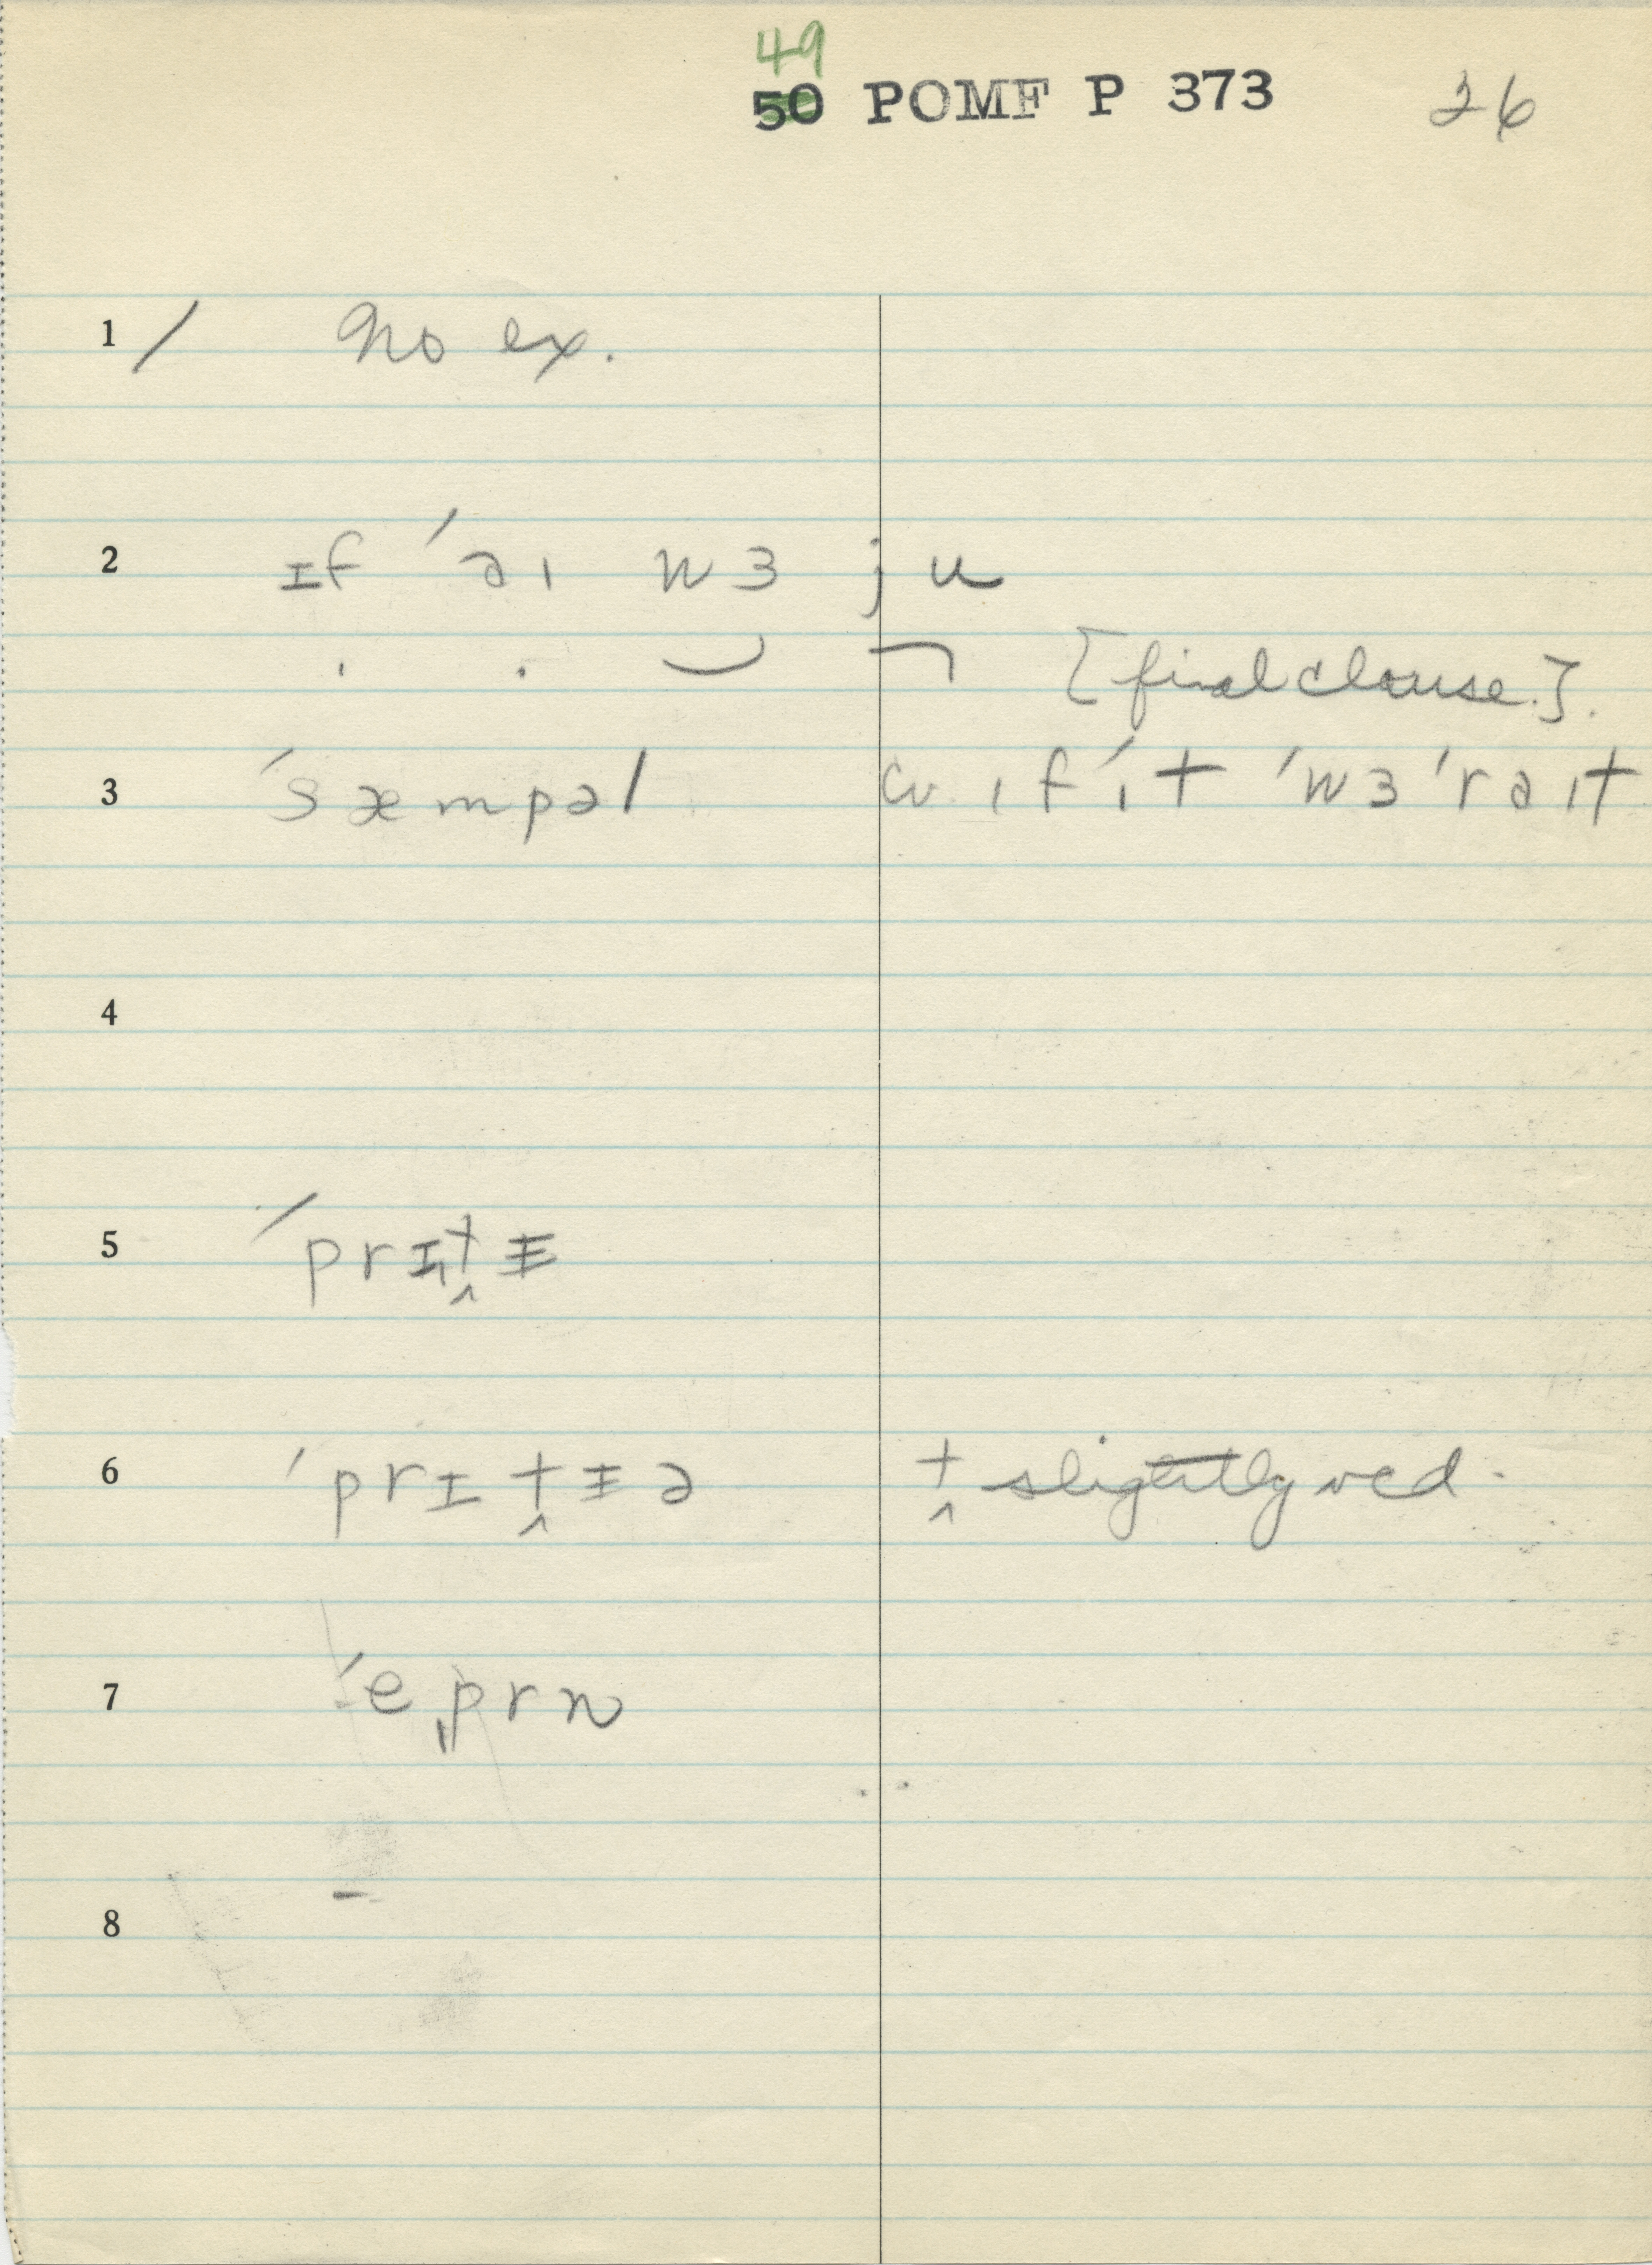 49
50 POMF P 373 26
1 / No ex.
2 ɪf ˈəɪ wɜ ju
[final clause.].
3 ˈsæmpəl cv. ɪf ˈɪt ˈwɜ ˈrəɪt
4
5 ˈprɪt̬ᵻ
6 ˈprɪt̬ᵻə t̬ slightly vcd.
7 ˈeˌprn
8